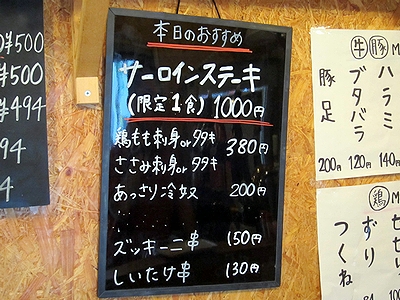 本日のおすすめ
サーロインステーキ
(限定1食) 1000円
鶏もも刺身orタタキ 380円
ささみ刺身orタタキ
あっさり冷奴 200円
ズッキーニ串 150円
しいたけ串 130円
¥500
¥500
¥494
94
4
牛 豚 M
豚足 200円
ブタバラ 120円
ハラミ 140円
鶏 M
つくね
ずり